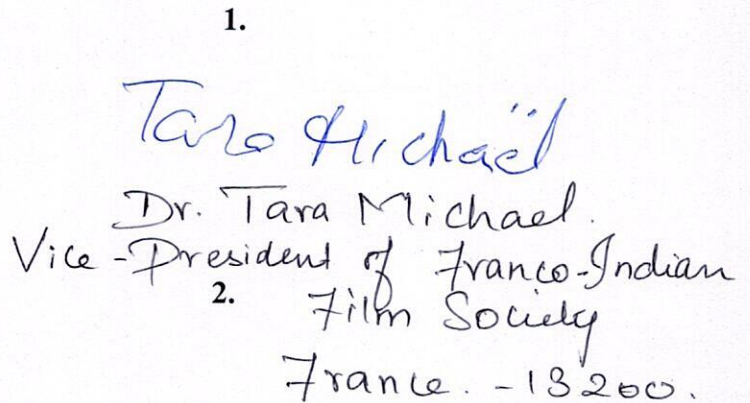 1.
Tara Michaël
Dr. Tara Michael.
Vice-President of Franco-Indian
2. Film Society
France. - 13200.